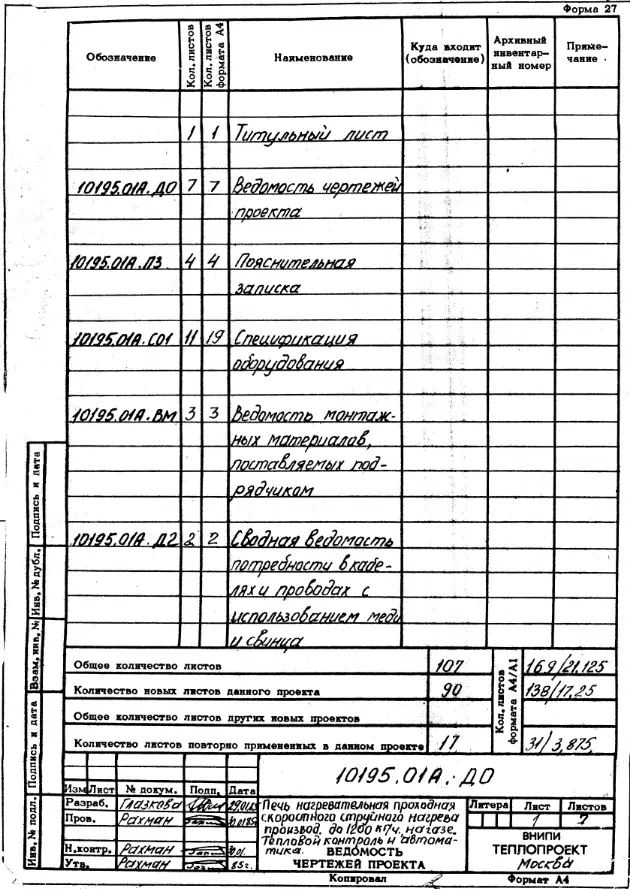 Форма 27
Обозначение
Кол. листов
Кол. листов формата А4
Наименование
Куда входит (обозначение)
Архивный инвентар- ный номер
Приме- чание
1 1 Титульный лист
10195.01А.ДО 7 7 Ведомость чертежей
проекта
10195.01А.ПЗ 4 4 Пояснительная
записка
10195.01А.СО1 11 19 Спецификация
оборудования
10195.01А.ВМ 3 3 Ведомость монтаж-
ных материалов,
поставляемых под-
рядчиком
10195.01А.Д2 2 2 Сводная ведомость
потребности в кабе-
лях и проводах с
использованием меди
и свинца
Общее количество листов 107
Количество новых листов данного проекта 90
Общее количество листов других новых проектов
Количество листов повторно примененных в данном проекте 17
Кол. листов формата А4/А1
169/21,125
138/17,25
31/3,875
10195.01А.ДО
Изм Лист № докум. Подп. Дата
Разраб. Глазкова
Пров. Рахман
Н.контр. Рахман
Утв. Рахман 85г.
Печь нагревательная проходная
скоростного струйного нагрева
производ. до 1200 кг/ч. на газе.
Тепловой контроль и автома-
тика. ВЕДОМОСТЬ
ЧЕРТЕЖЕЙ ПРОЕКТА
Литера Лист Листов
1 7
ВНИПИ
ТЕПЛОПРОЕКТ
Москва
Копировал
Формат А4
Инв. № подл.
Подпись и дата
Взам. инв. №
Инв. № дубл.
Подпись и дата